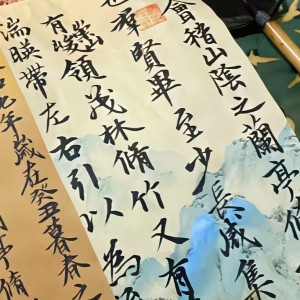 會稽山陰之蘭亭脩
也羣賢畢至少長咸集
有崇山峻領茂林脩竹又有
湍暎帶左右引以為
九年歲在癸丑暮春之
亭脩